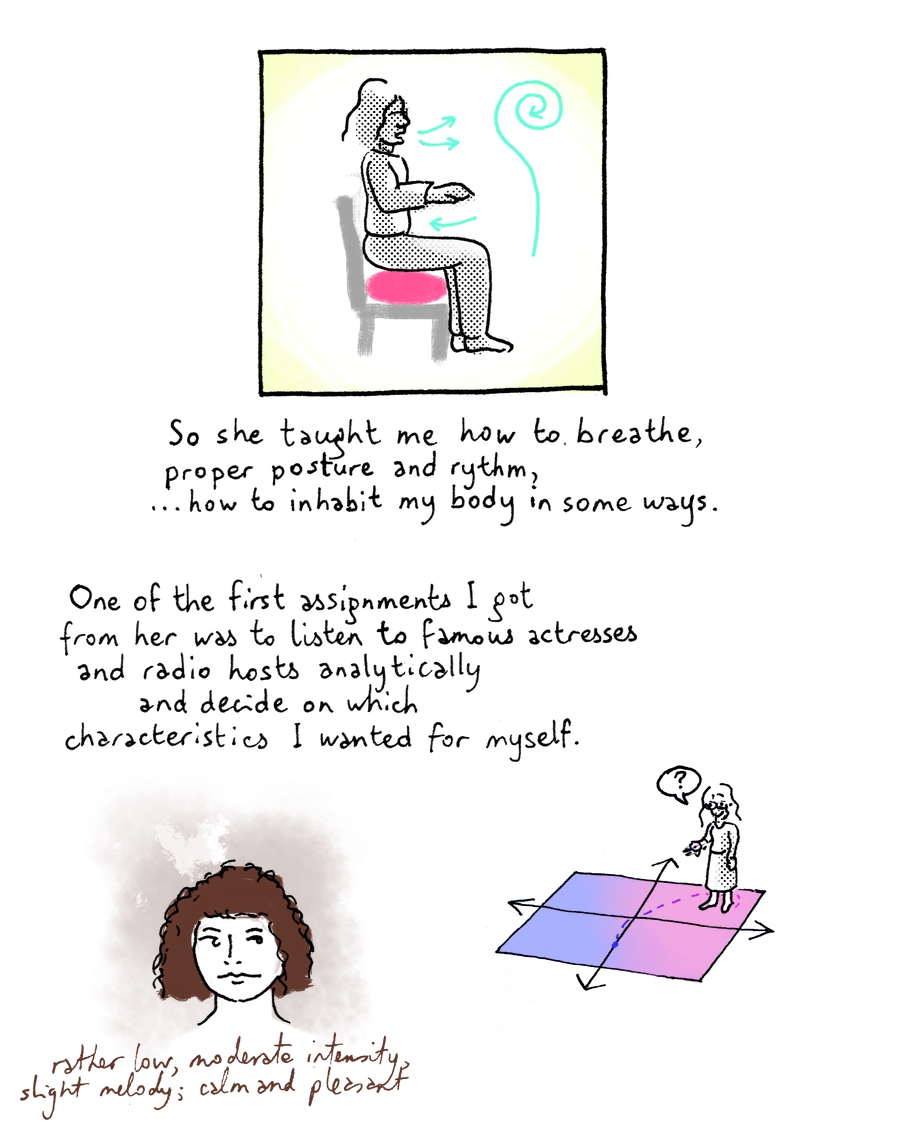 So she taught me how to breathe,
proper posture and rythm,
...how to inhabit my body in some ways.
One of the first assignments I got
from her was to listen to famous actresses
and radio hosts analytically
and decide on which
characteristics I wanted for myself.
?
rather low, moderate intensity,
slight melody; calm and pleasant